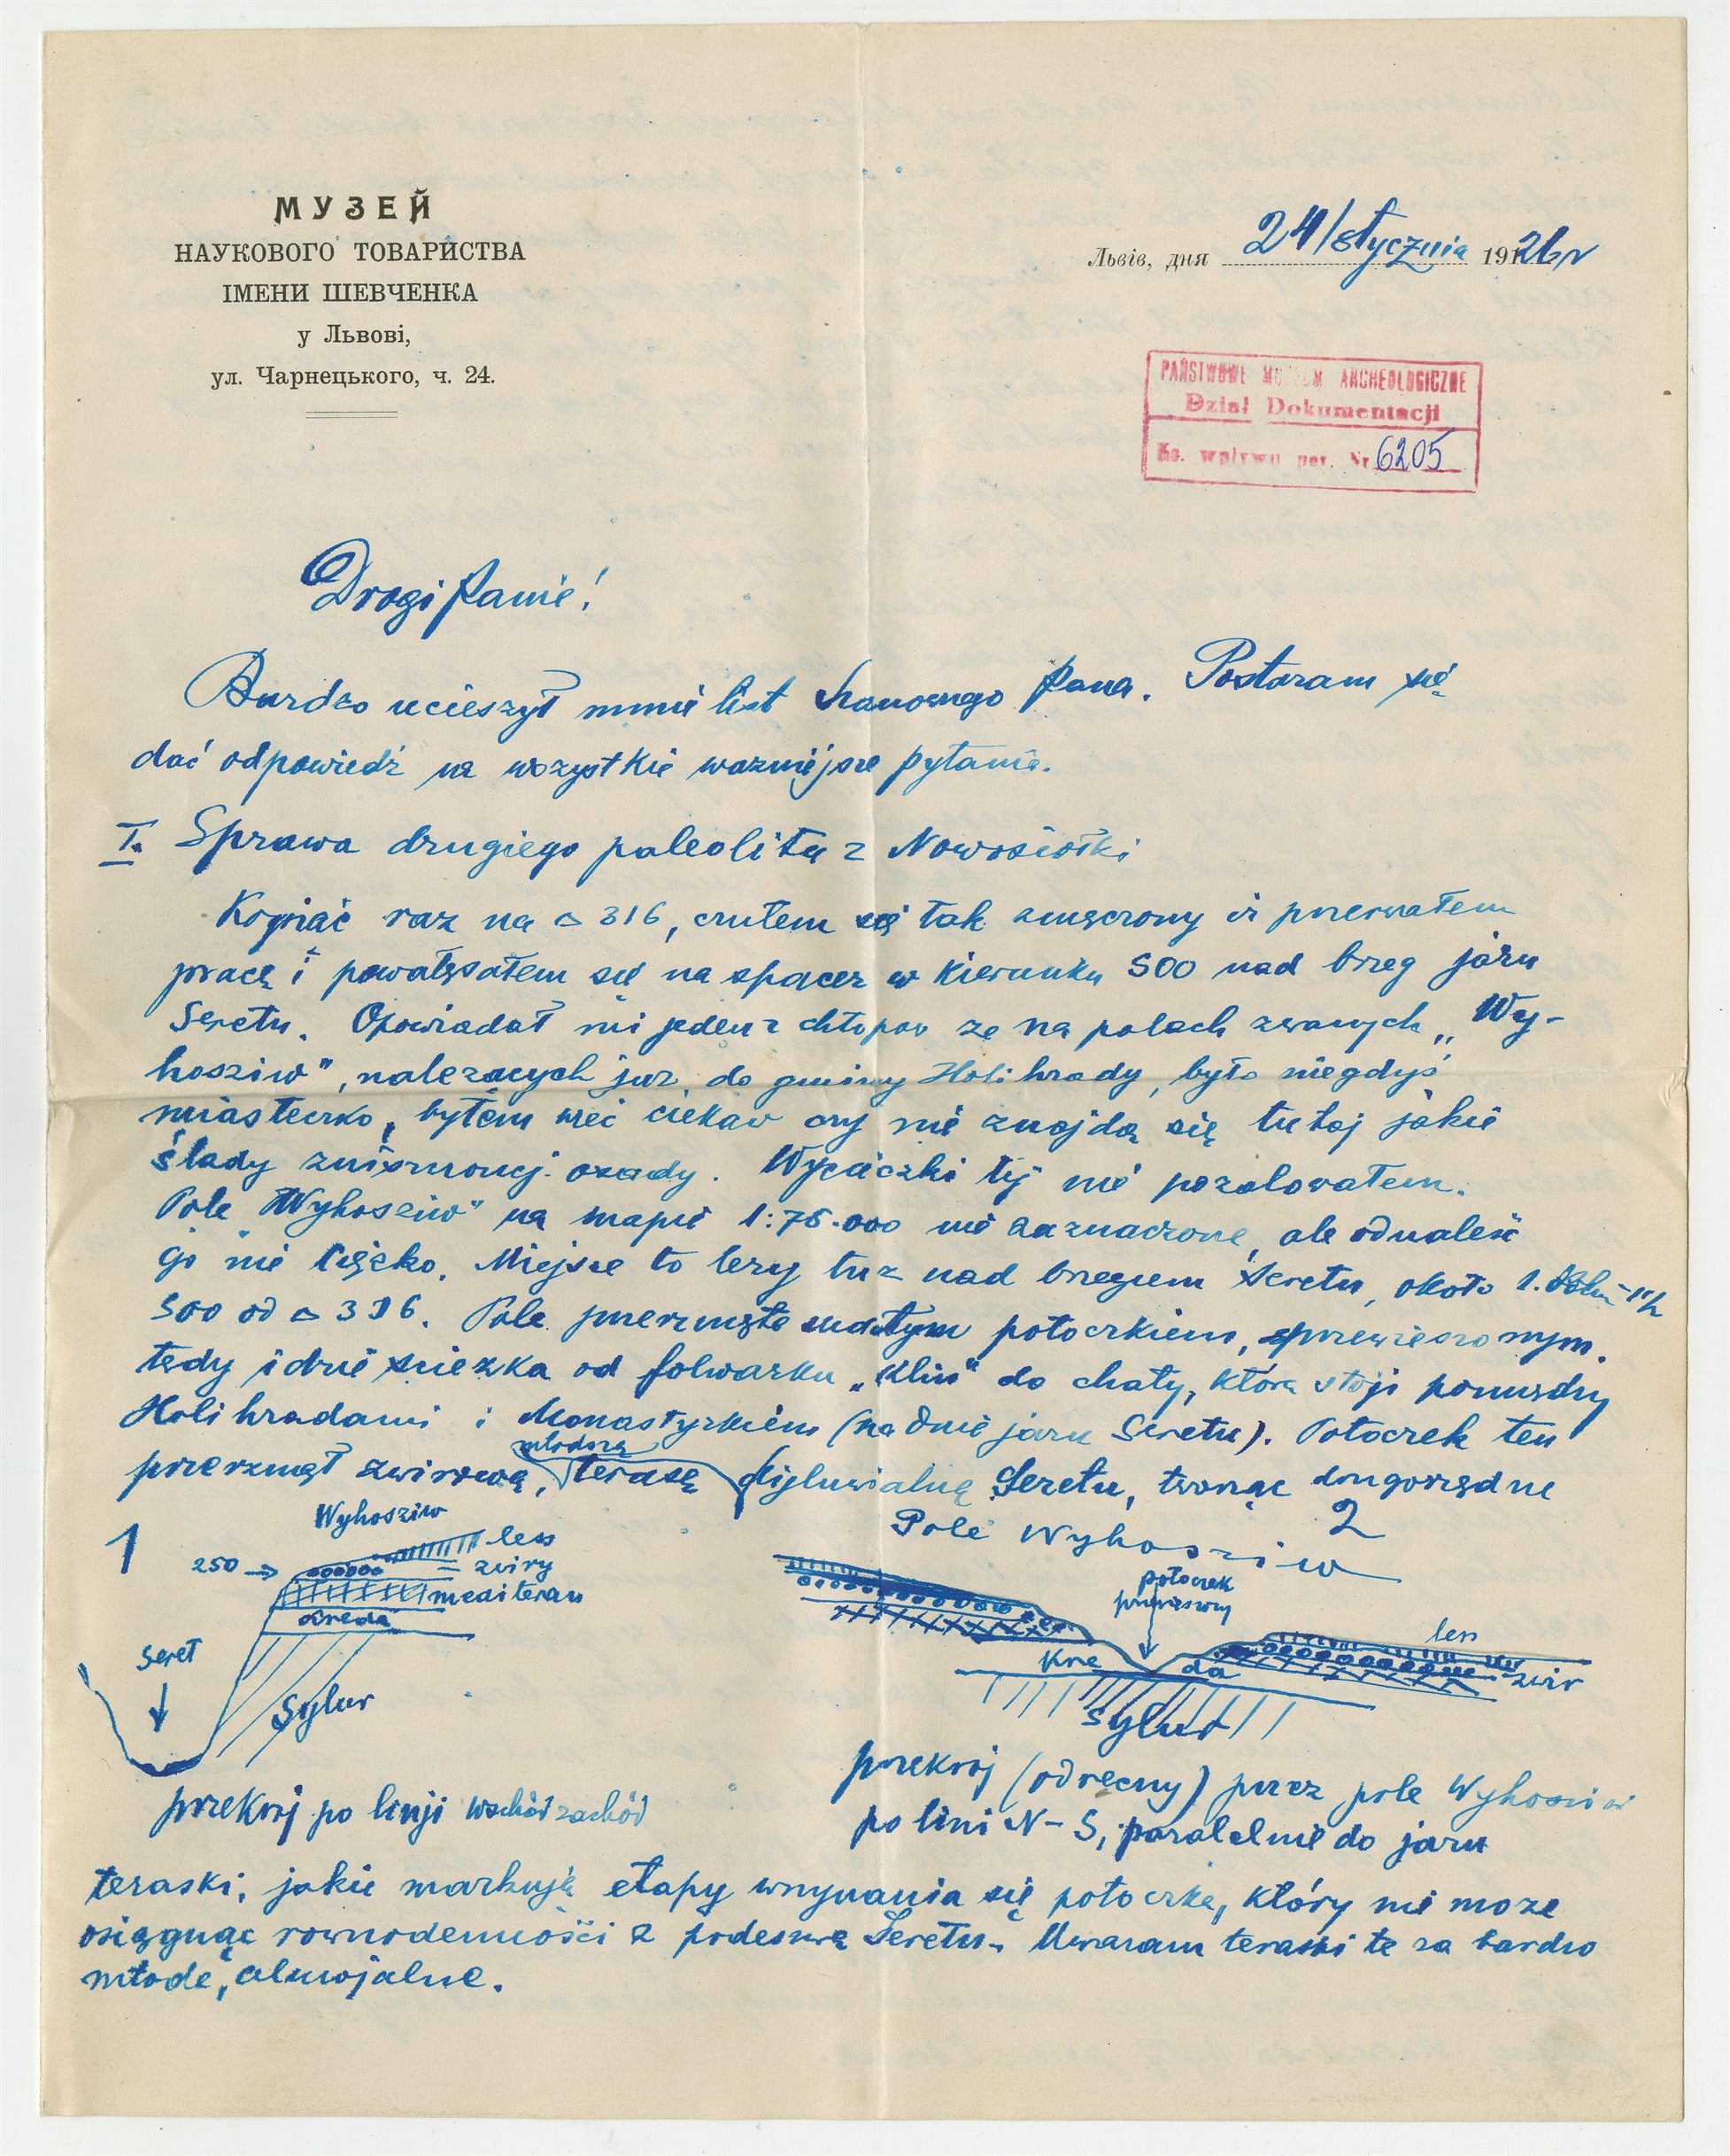 МУЗЕЙ
НАУКОВОГО ТОВАРИСТВА
ІМЕНИ ШЕВЧЕНКА
у Львові,
ул. Чарнецького, ч. 24.
Львів, дня 24/stycznia 1926 r
PAŃSTWOWE MUZEUM ARCHEOLOGICZNE
Dział Dokumentacji
Ks. wpływu poz. Nr 6205
Drogi Panie!
Bardzo ucieszył mnie list Szanownego Pana. Postaram się
dać odpowiedź na wszystkie wazniejsze pytania.
I. Sprawa drugiego paleolitu z Nowosiółki
Kopiąc raz na △ 316, czułem się tak zmęczony iż przerwałem
pracę i powałęsałem się na spacer w kierunku SOO nad brzeg jaru
Seretu. Opowiadał mi jeden z chłopów ze na polach zwanych „Wy-
hosziw", nalezących juz do gminy Holihrady, było niegdyś
miasteczko, byłem więc ciekaw czy nie znajdą się tutaj jakie
ślady zniszczonej osady. Wycieczki tej nie pozalowałem.
Pole „Wyhosziw" na mapie 1:75.000 nie zaznaczone, ale odnaleść
go nie cięzko. Miejsce to lezy tuz nad brzegiem Seretu, około 1.
SOO od △ 316. Pole przerznięte małym potoczkiem, przewieszonym.
tędy idzie sciezka od folwarku „Klin" do chaty, która stoji pomiędzy
Holihradami i Monastyrkiem (na dnie jaru Seretu). Potoczek ten
młodszą
przerznął zwirową, terasę dyluwialną Seretu, tworząc drugorzędne
1
Wyhosziw
250 →
less
zwiry
mediteran
Kreda
Seret
Sylur
przekrój po linji wschód zachód
2
Pole Wyhosziw
potoczek
przewieszony
less
zwir
Kre da
Sylur
przekroj (odręczny) przez pole Wyhosziw
po linii N-S, paralelnie do jaru
teraski, jakie markują etapy wrzynania się potoczka, który nie moze
osiągnąc rownodennosci z podeszwą Seretu. Uwazam teraski te za bardzo
młode, aluwjalne.